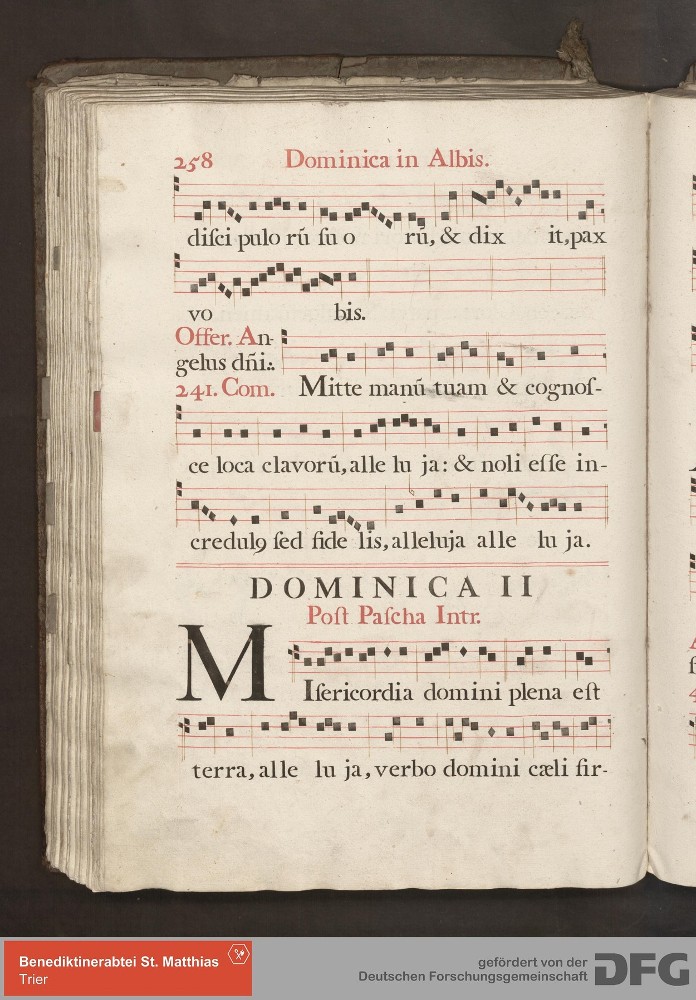 258 Dominica in Albis.
diſci pulo rũ ſu o rũ, & dix it, pax
vo bis.
Offer. An-
gelus dñi:.
241. Com. Mitte manũ tuam & cognoſ-
ce loca clavorũ, alle lu ja: & noli eſſe in-
credulꝰ ſed fide lis, alleluja alle lu ja.
DOMINICA II
Poſt Paſcha Intr.
MIſericordia domini plena eſt
terra, alle lu ja, verbo domini cæli fir-
Benediktinerabtei St. Matthias
Trier
gefördert von der
Deutschen Forschungsgemeinschaft
DFG